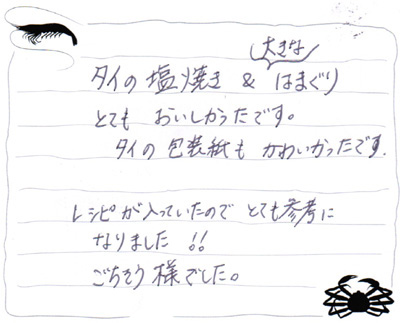 タイの塩焼き & 大きなはまぐり
とても おいしかったです。
タイの包装紙も かわいかったです.
レシピが入っていたので とても参考に
なりました !!
ごちそう様でした。